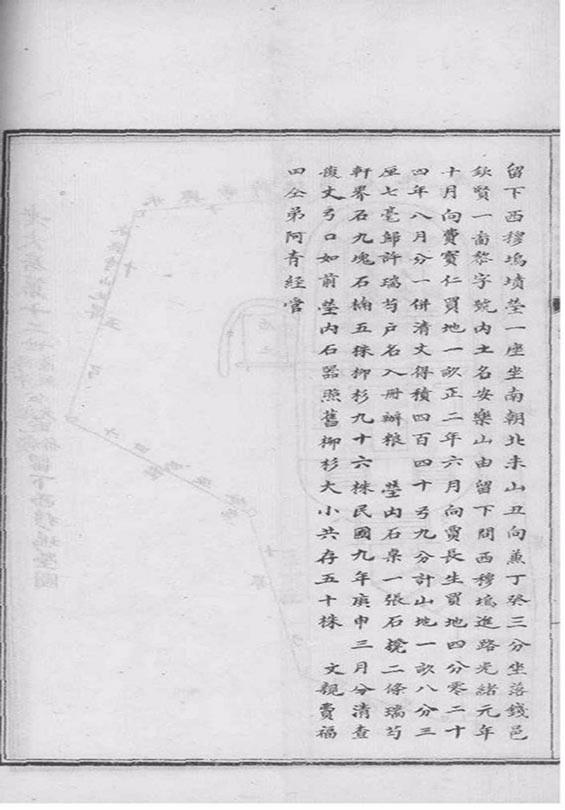 留下西穆塢墳塋一座坐南朝北未山丑向兼丁癸三分坐落錢邑
欽賢一啚黎字號內土名安樂山由留下問西穆塢進路光緒元年
十月向費寶仁買地一畝正二年六月向賈長生買地四分零二十
四年八月分一併清丈得積四百四十弓九分計山地一畝八分三
厘七毫歸許瑞芍戶名入冊辦粮 塋内石桌一張石櫈二條瑞芍
軒界石九塊石楠五株柳杉九十六株民國九年庚申三月分清查
復丈弓口如前塋內石器照舊柳杉大小共存五十株 文親費福
田仝弟阿青經官